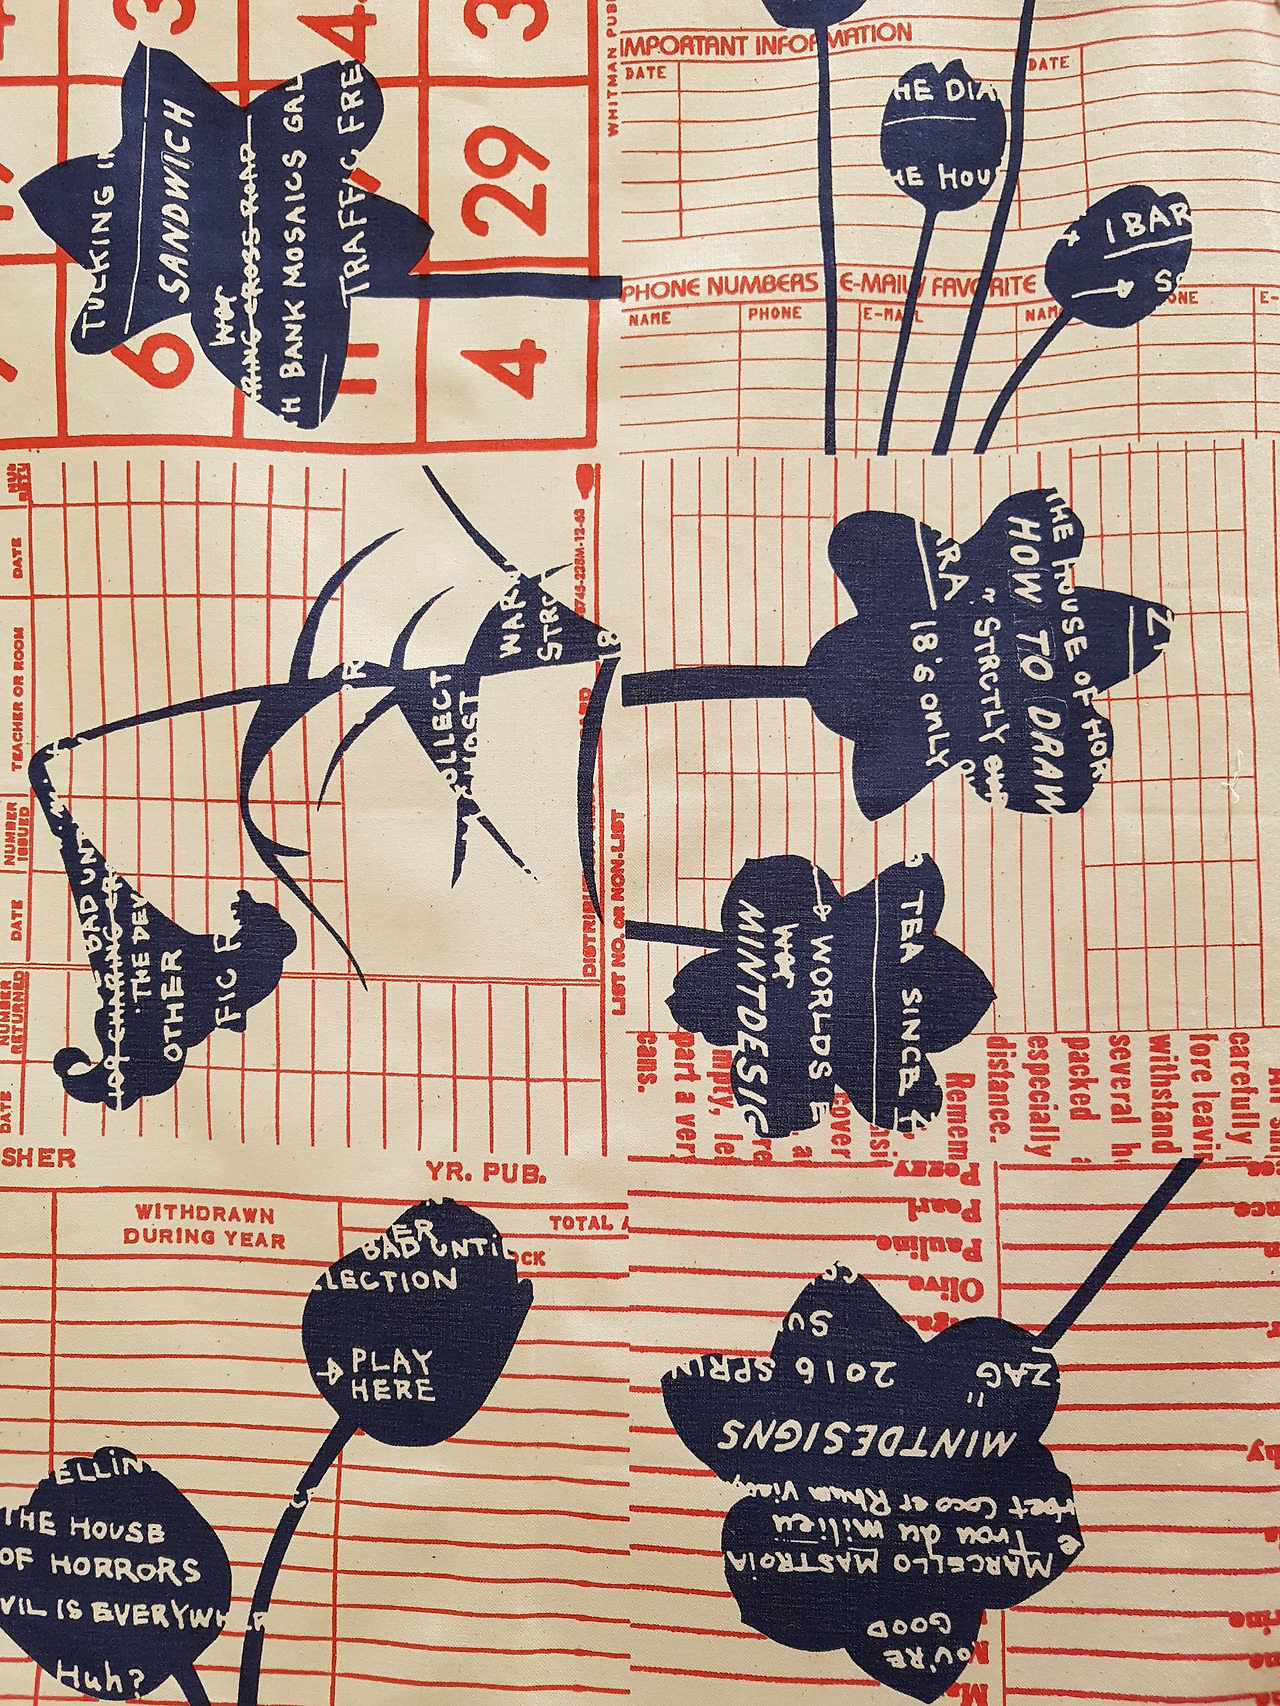 3
4
3
29
6
11
4
TUCKING
SANDWICH
War
RING CROSS ROAD
H BANK MOSAICS GAL
TRAFFIC FRE
WHITMAN PUB
IMPORTANT INFORMATION
DATE
DATE
HE DIA
HE HOU
1 BAR
PHONE NUMBERS
E-MAIL
FAVORITE
NAME
PHONE
E-MAIL
NAM
ONE
E-
DATE
TEACHER OR ROOM
NUMBER
ISSUED
DATE
NUMBER
RETURNED
DATE
WAR
STR
8
R
OLLECT
BAD UN
THE DEV
OTHER
FIC F
8745-235M-12-63
LIST NO. OR NON-LIST
THE HOUSE OF HOR
HOW TO DRAW
STRCTLY
18's ONLY
ARA
Z
TEA SINCE
WORLDS E
War
MINTDESIG
carefully
fore leavin
withstand
several h
packed a
especially
distance.
Remem
cover
mpty, le
part a very
cans.
SHER
YR. PUB.
WITHDRAWN
DURING YEAR
TOTAL
OCK
ER
BAD UNTIL
LECTION
PLAY
HERE
ELLIN
THE HOUSE
OF HORRORS
VIL IS EVERYWHER
Huh?
Peggy
Pearl
Pauline
Olive
SU
2016 SPRIN
ZAG
MINTDESIGNS
Trou du milieu
MARCELLO MASTROIA
GOOD
YOU'RE